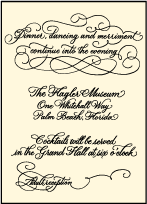 Dinner, dancing and merriment
continue into the evening
The Flagler Museum
One Whitehall Way
Palm Beach, Florida
Cocktails will be served
in the Grand Hall at six o'clock
Adult reception